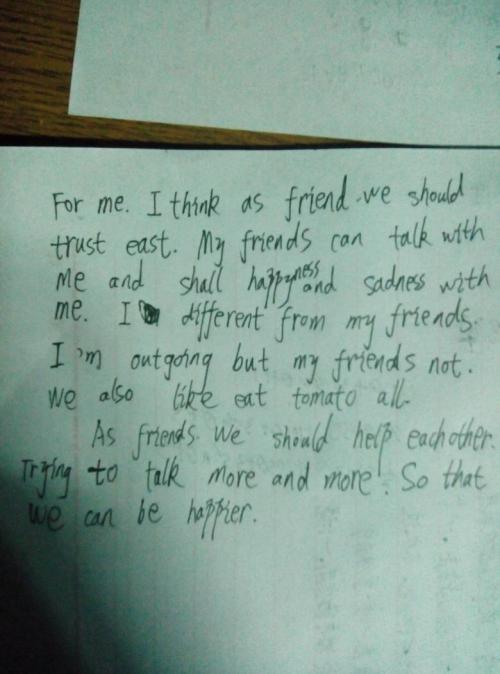 For me. I think as friend we should
trust east. My friends can talk with
me and shall happyness and sadness with
me. I different from my friends.
I'm outgoing but my friends not.
We also like eat tomato all.
As friends we should help eachother.
Trying to talk more and more! So that
we can be happier.